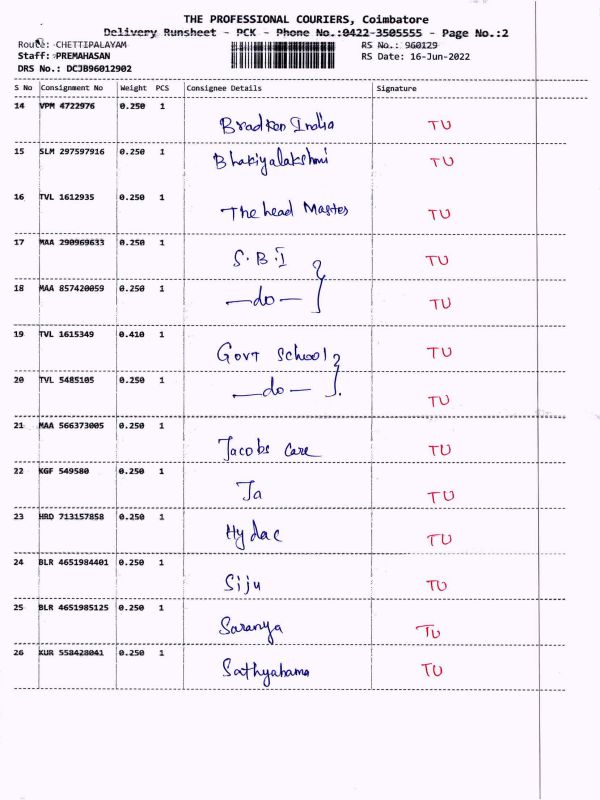 THE PROFESSIONAL COURIERS, Coimbatore
Delivery Runsheet - PCK - Phone No.:0422-3505555 - Page No.:2
Route: CHETTIPALAYAM
RS No.: 960129
Staff: PREMAHASAN
RS Date: 16-Jun-2022
DRS No.: DCJB96012902
S No Consignment No Weight PCS Consignee Details Signature
14 VPM 4722976 0.250 1 Bradken India TU
15 SLM 297597916 0.250 1 Bhakiyalakshmi TU
16 TVL 1612935 0.250 1 The head Master TU
17 MAA 290969633 0.250 1 S.B.I TU
18 MAA 857420059 0.250 1 —do— TU
19 TVL 1615349 0.410 1 Govt School TU
20 TVL 5485105 0.250 1 —do— TU
21 MAA 566373005 0.250 1 Jacobs Care TU
22 KGF 549580 0.250 1 Ja TU
23 HRD 713157858 0.250 1 Hydac TU
24 BLR 4651984401 0.250 1 Siju TU
25 BLR 4651985125 0.250 1 Saranya TU
26 KUR 558428041 0.250 1 Sathyabama TU